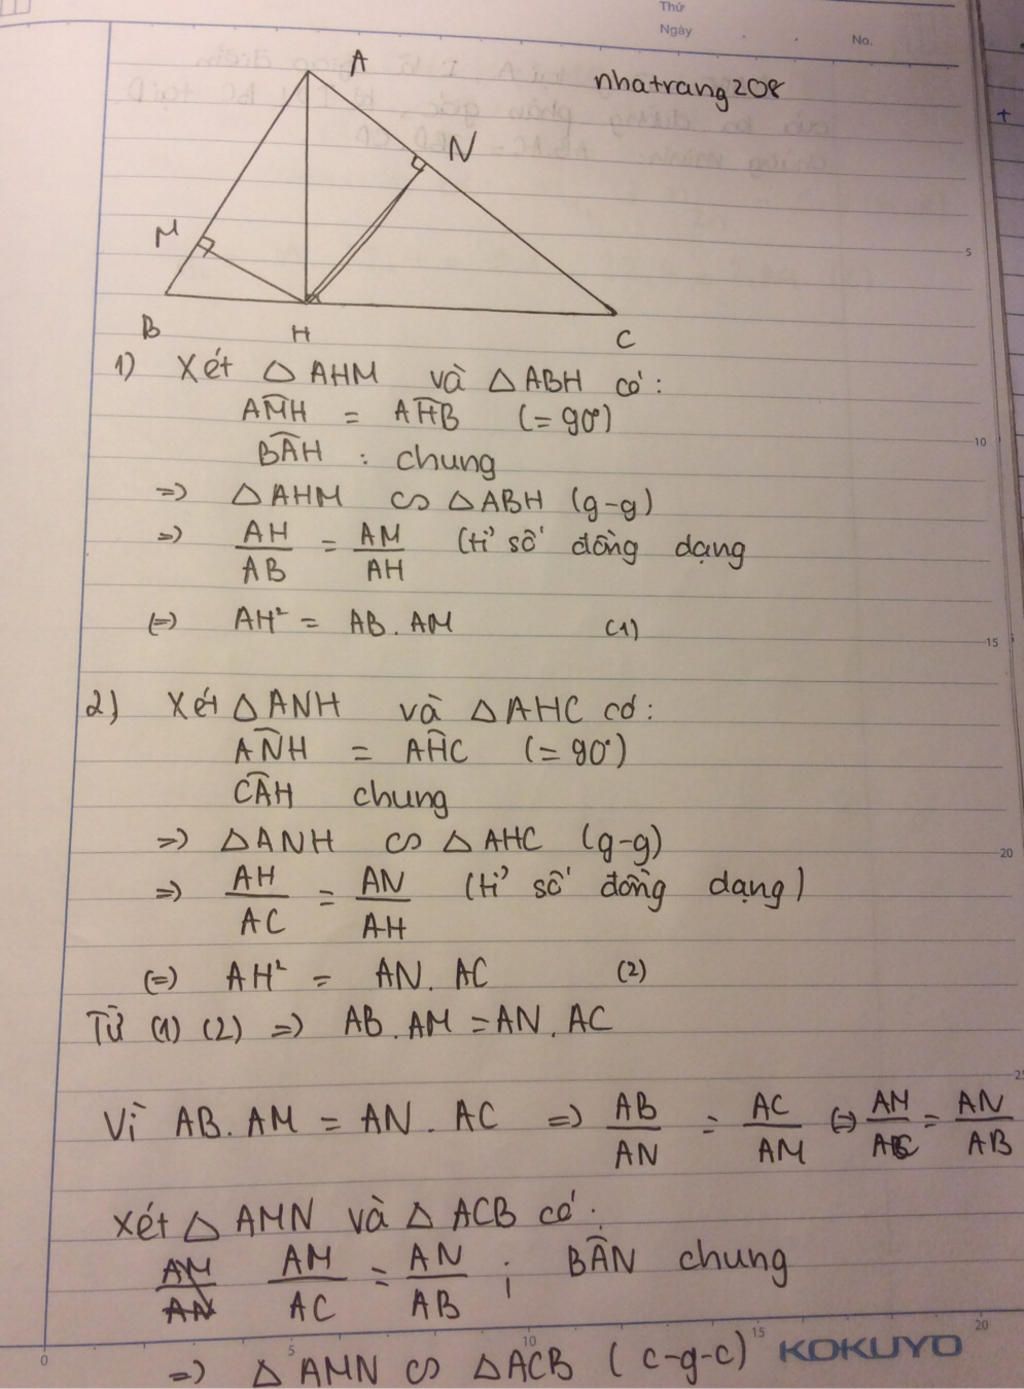 Thứ
Ngày . . No.
nhatrang208
A
N
M
B H C
5
1) Xét △ AHM và △ ABH có:
AM̂H = AĤB (= 90°)
BÂH : chung
10
=> △ AHM ∽ △ ABH (g-g)
=> AH/AB = AM/AH (tỉ số đồng dạng
(=) AH² = AB. AM (1)
15
2) Xét △ ANH và △ AHC có:
AN̂H = AĤC (= 90°)
CÂH chung
=> △ ANH ∽ △ AHC (g-g)
20
=> AH/AC = AN/AH (tỉ số đồng dạng)
(=) AH² = AN. AC (2)
Từ (1) (2) => AB. AM = AN. AC
25
Vì AB. AM = AN. AC => AB/AN = AC/AM (=) AM/AC = AN/AB
Xét △ AMN và △ ACB có:
AM/AN AM/AC = AN/AB ; BÂN chung
0 5 10 15 KOKUYO 20
=> △ AMN ∽ △ ACB (c-g-c)